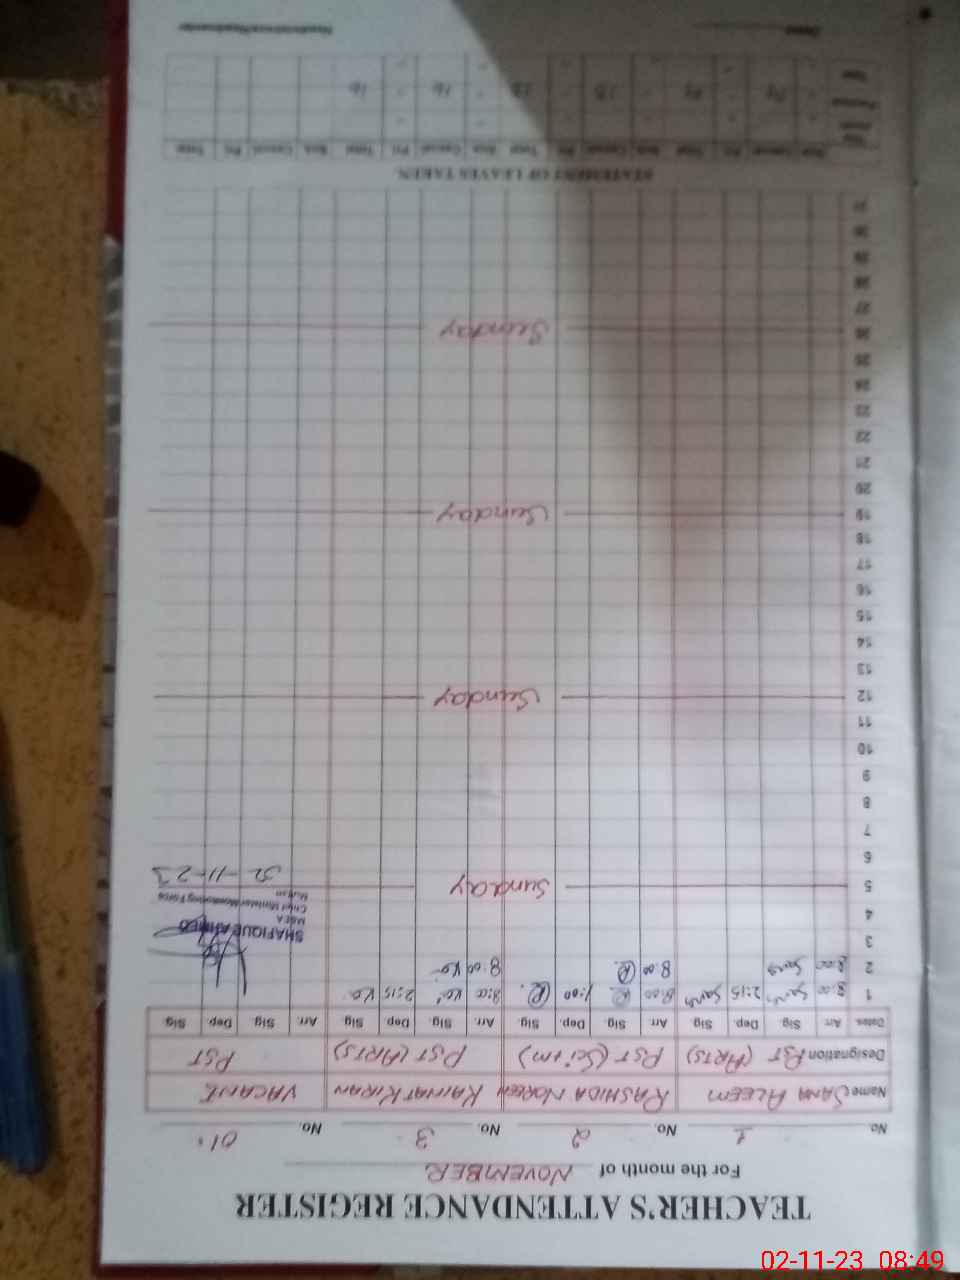 TEACHER'S ATTENDANCE REGISTER
For the month of NOVEMBER
No. 1 No. 2 No. 3 No. 01.
Name SANA ALEEM RASHIDA NOREEN KAINAT KIRAN VACANT
Designation PST (ARTS) PST (Sci:m) PST (ARTS) PST
Dates Arr. Sig. Dep. Sig. Arr. Sig. Dep. Sig. Arr. Sig. Dep. Sig. Arr. Sig. Dep. Sig.
1 8:00 Sana 2:15 Sana 8:00 R 1:00 R 8:00 Ko 2:15 Ko
2 8:00 Sana 8:00 R 8:00 Ko
3
SHAFIQUE AHMED
4
MSEA
Chief Minister Monitoring Force
Multan
5 Sunday
-11-23
6
7
8
9
10
11
12 Sunday
13
14
15
16
17
18
19 Sunday
20
21
22
23
24
25
26 Sunday
27
28
29
30
31
STATEMENT OF LEAVES TAKEN
Casual Total Casual Total Casual Total Casual Total
16 16
02-11-23 08:49